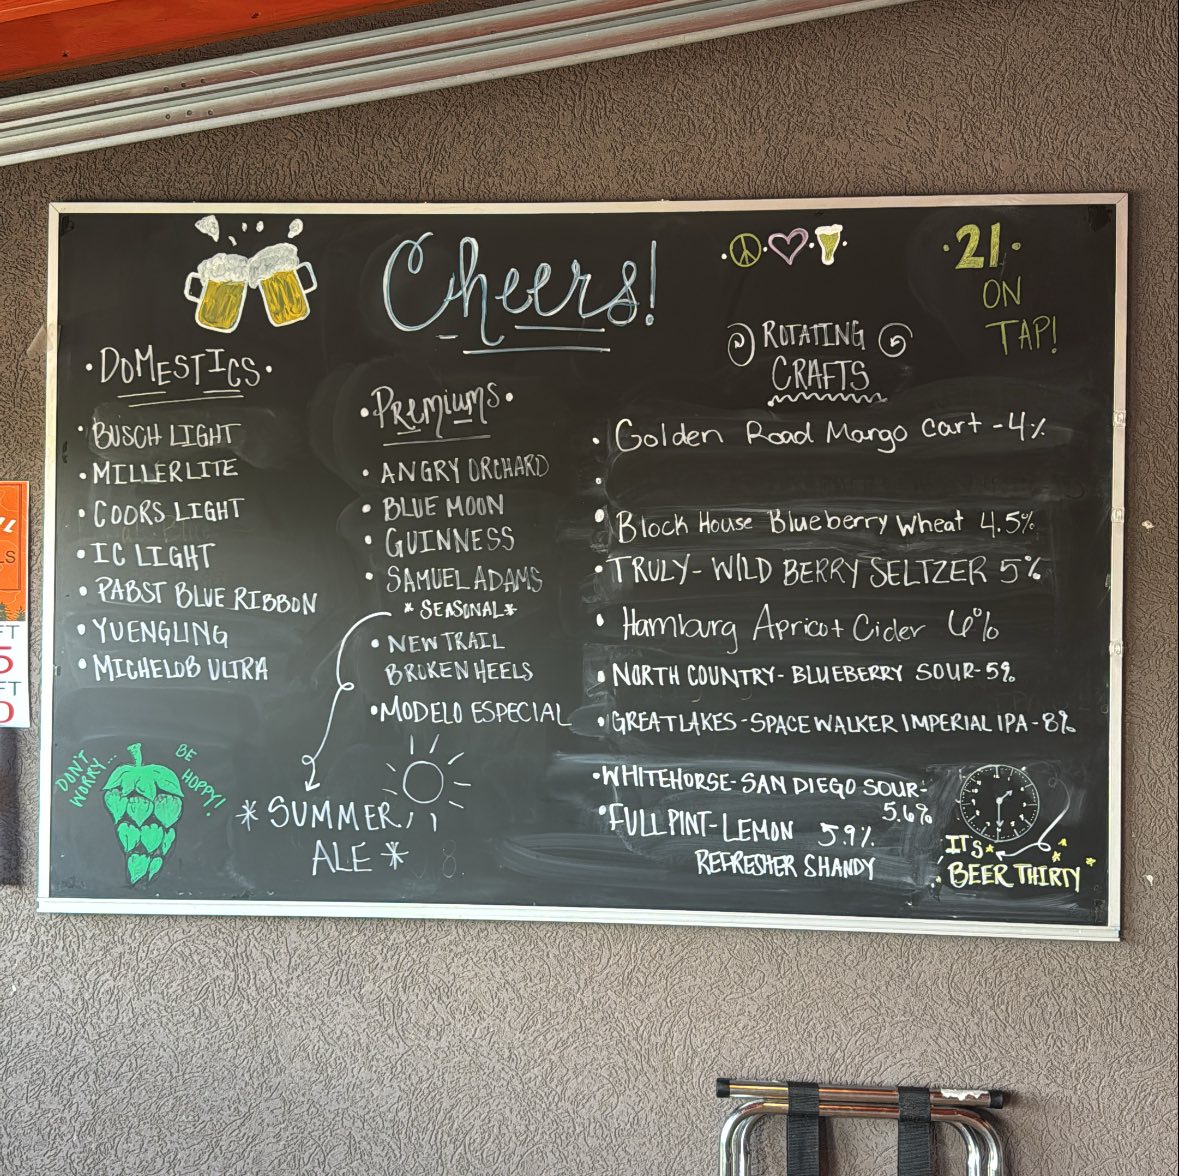 Cheers!
·21·
ON
TAP!
·DOMESTICS·
· BUSCH LIGHT
· MILLER LITE
· COORS LIGHT
· IC LIGHT
· PABST BLUE RIBBON
· YUENGLING
· MICHELOB ULTRA
DON'T
WORRY...
BE
HOPPY!
·PREMIUMS·
· ANGRY ORCHARD
· BLUE MOON
· GUINNESS
· SAMUEL ADAMS
* SEASONAL *
· NEW TRAIL
BROKEN HEELS
· MODELO ESPECIAL
* SUMMER
ALE *
ROTATING
CRAFTS
· Golden Road Mango Cart - 4%
·
· Block House Blueberry Wheat 4.5%
· TRULY - WILD BERRY SELTZER 5%
· Hamburg Apricot Cider 6%
· NORTH COUNTRY - BLUEBERRY SOUR - 5%
· GREAT LAKES - SPACE WALKER IMPERIAL IPA - 8%
· WHITEHORSE - SAN DIEGO SOUR -
5.6%
· FULL PINT - LEMON 5.9%
REFRESHER SHANDY
ITS
BEER THIRTY
LS
FT
5
FT
0